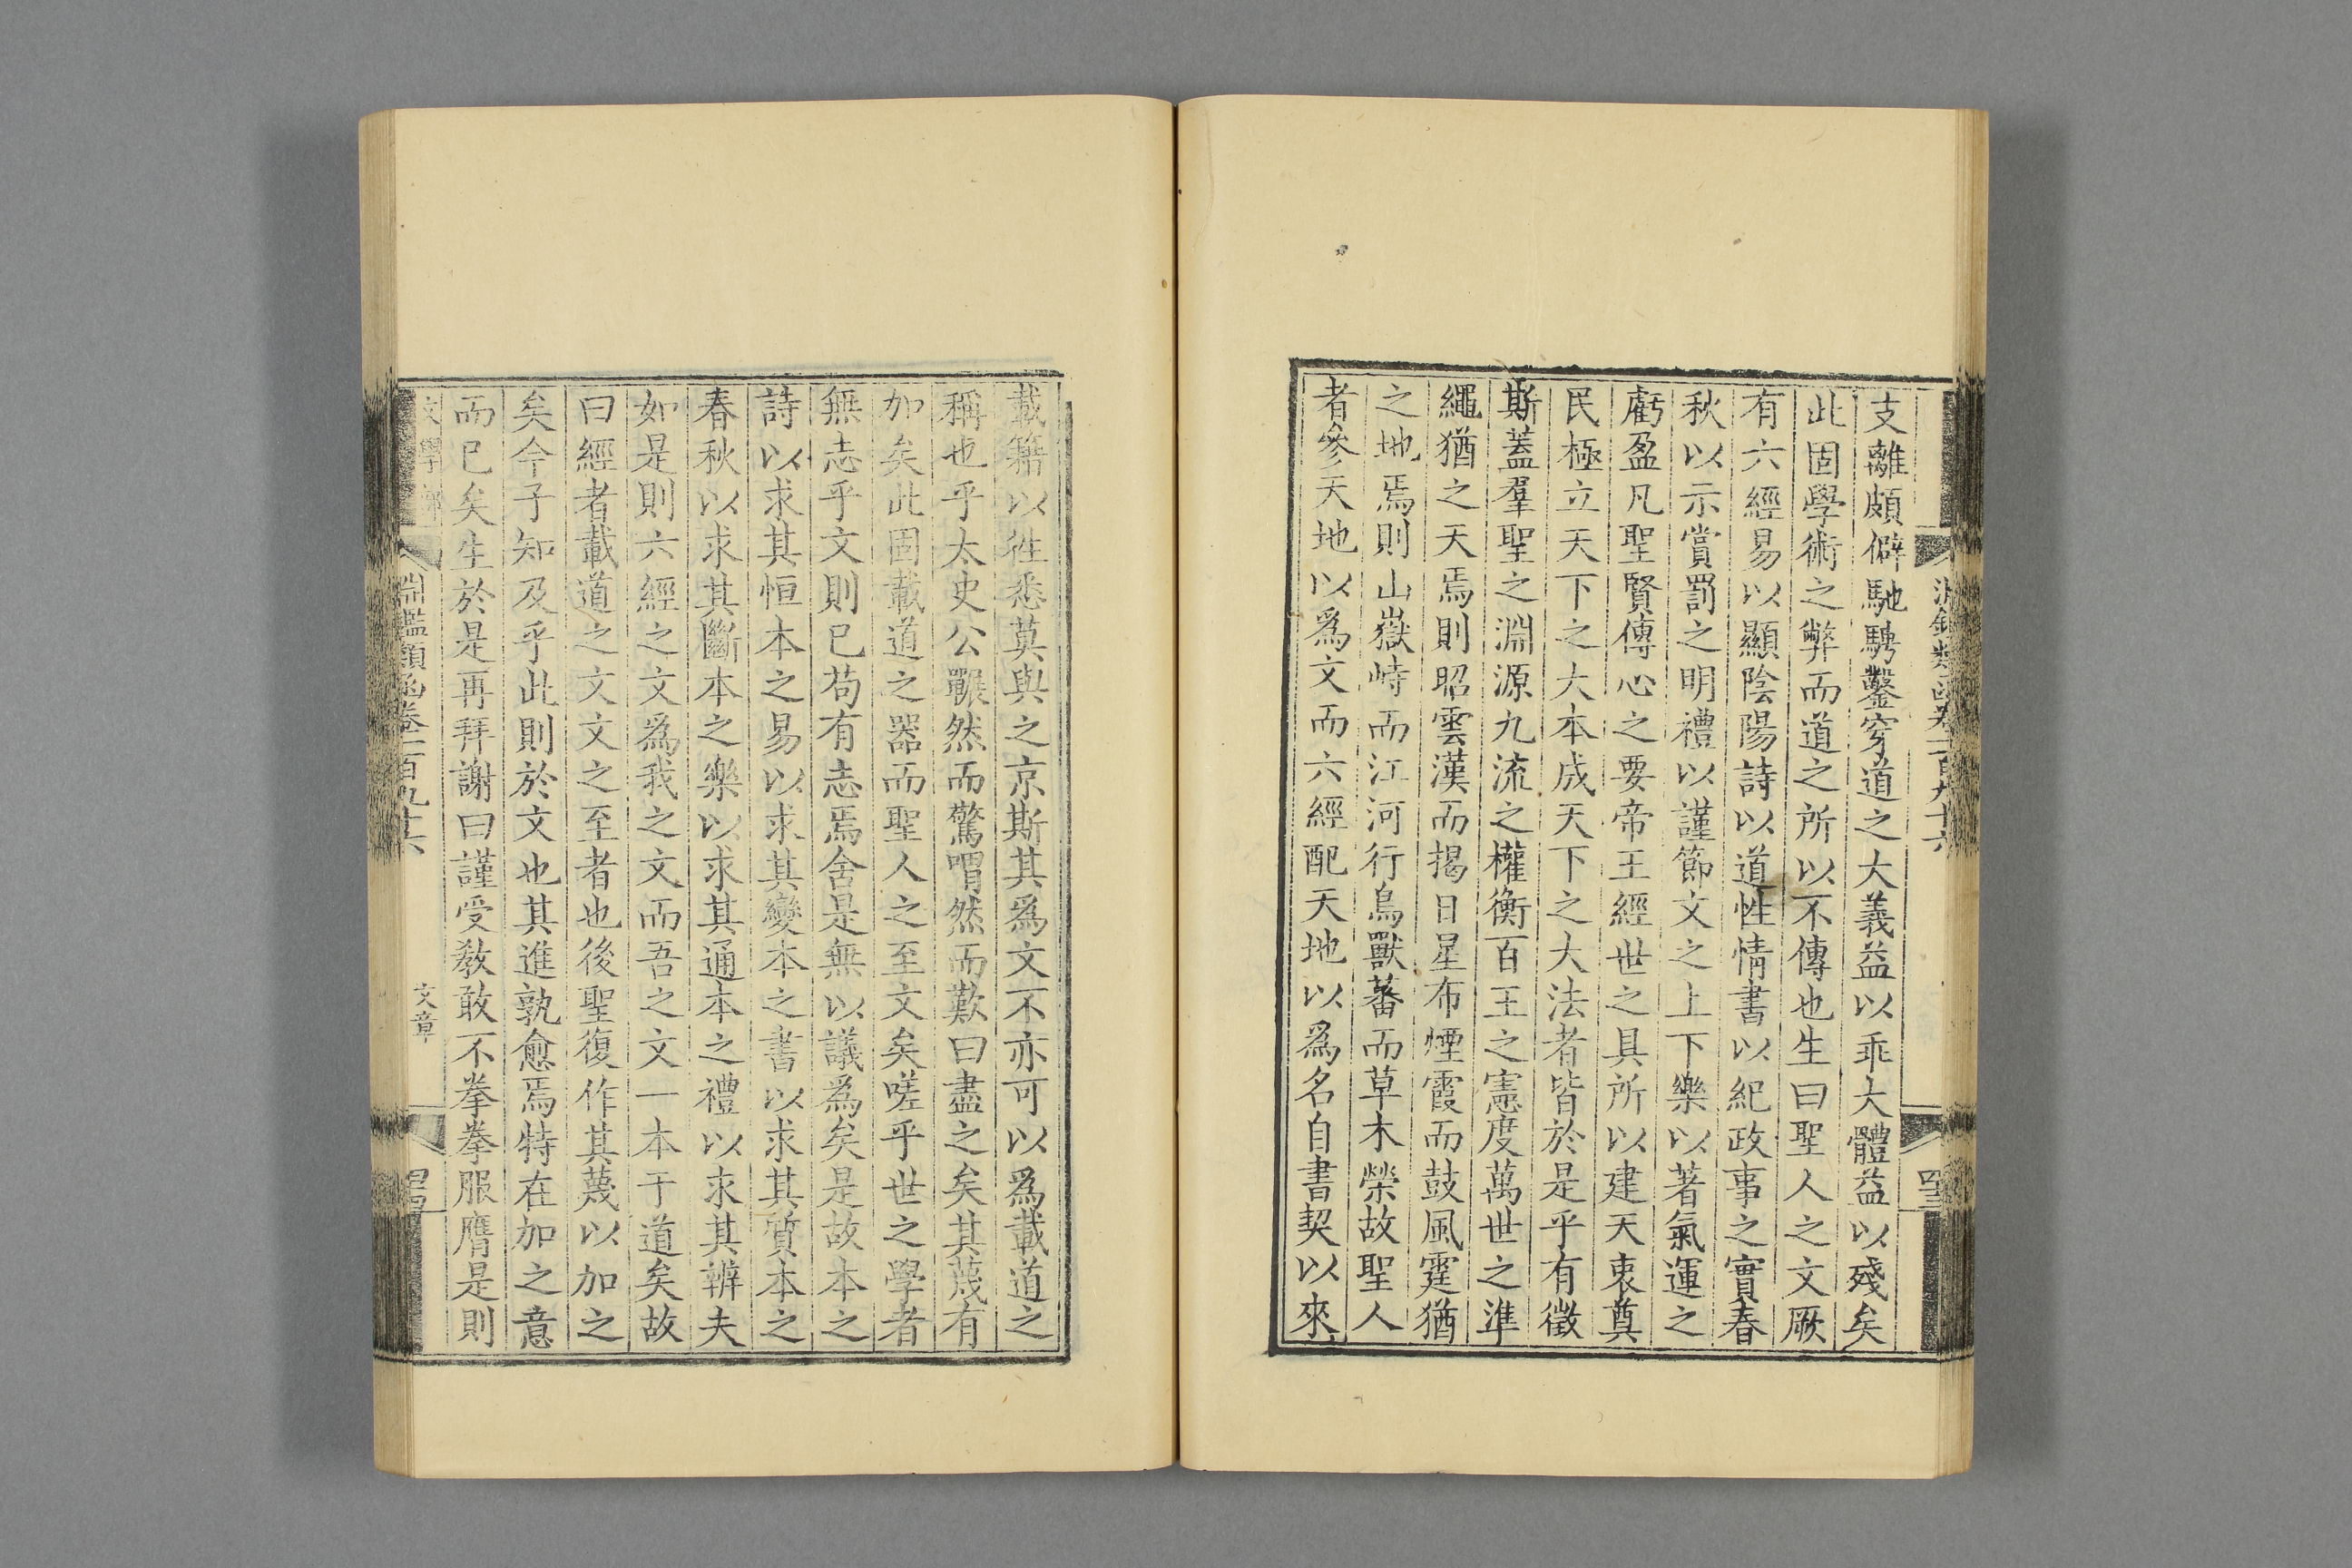 淵鑑類函卷一百九十六
支離頗僻馳騁鑿穿道之大義益以乖大體益以殘矣
此固學術之弊而道之所以不傳也生曰聖人之文厥
有六經易以顯陰陽詩以道性情書以紀政事之實春
秋以示賞罰之明禮以謹節文之上下樂以著氣運之
虧盈凡聖賢傳心之要帝王經世之具所以建天衷奠
民極立天下之大本成天下之大法者皆於是乎有徵
斯蓋羣聖之淵源九流之權衡百王之憲度萬世之準
繩猶之天焉則昭雲漢而揭日星布煙霞而鼓風霆猶
之地焉則山嶽峙而江河行鳥獸蕃而草木榮故聖人
者參天地以爲文而六經配天地以爲名自書契以來
載籍以徃悉莫與之京斯其爲文不亦可以爲載道之
稱也乎太史公囅然而驚喟然而歎曰盡之矣其蔑有
加矣此固載道之器而聖人之至文矣嗟乎世之學者
無志乎文則已苟有志焉舍是無以議爲矣是故本之
詩以求其恒本之易以求其變本之書以求其質本之
春秋以求其斷本之樂以求其通本之禮以求其辨夫
如是則六經之文爲我之文而吾之文一本于道矣故
曰經者載道之文文之至者也後聖復作其蔑以加之
矣今子知及乎此則於文也其進孰愈焉特在加之意
而已矣生於是再拜謝曰謹受敎敢不拳拳服膺是則
淵鑑類函卷一百九十六
文章